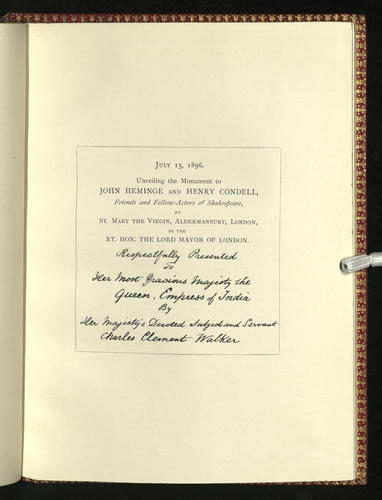 JULY 15, 1896.
Unveiling the Monument to
JOHN HEMINGE AND HENRY CONDELL,
Friends and Fellow-Actors of Shakespeare,
AT
ST. MARY THE VIRGIN, ALDERMANBURY, LONDON,
BY THE
RT. HON. THE LORD MAYOR OF LONDON.
Respectfully Presented
To
Her Most Gracious Majesty the
Queen, Empress of India
By
Her Majesty's Devoted Subject and Servant
Charles Clement Walker